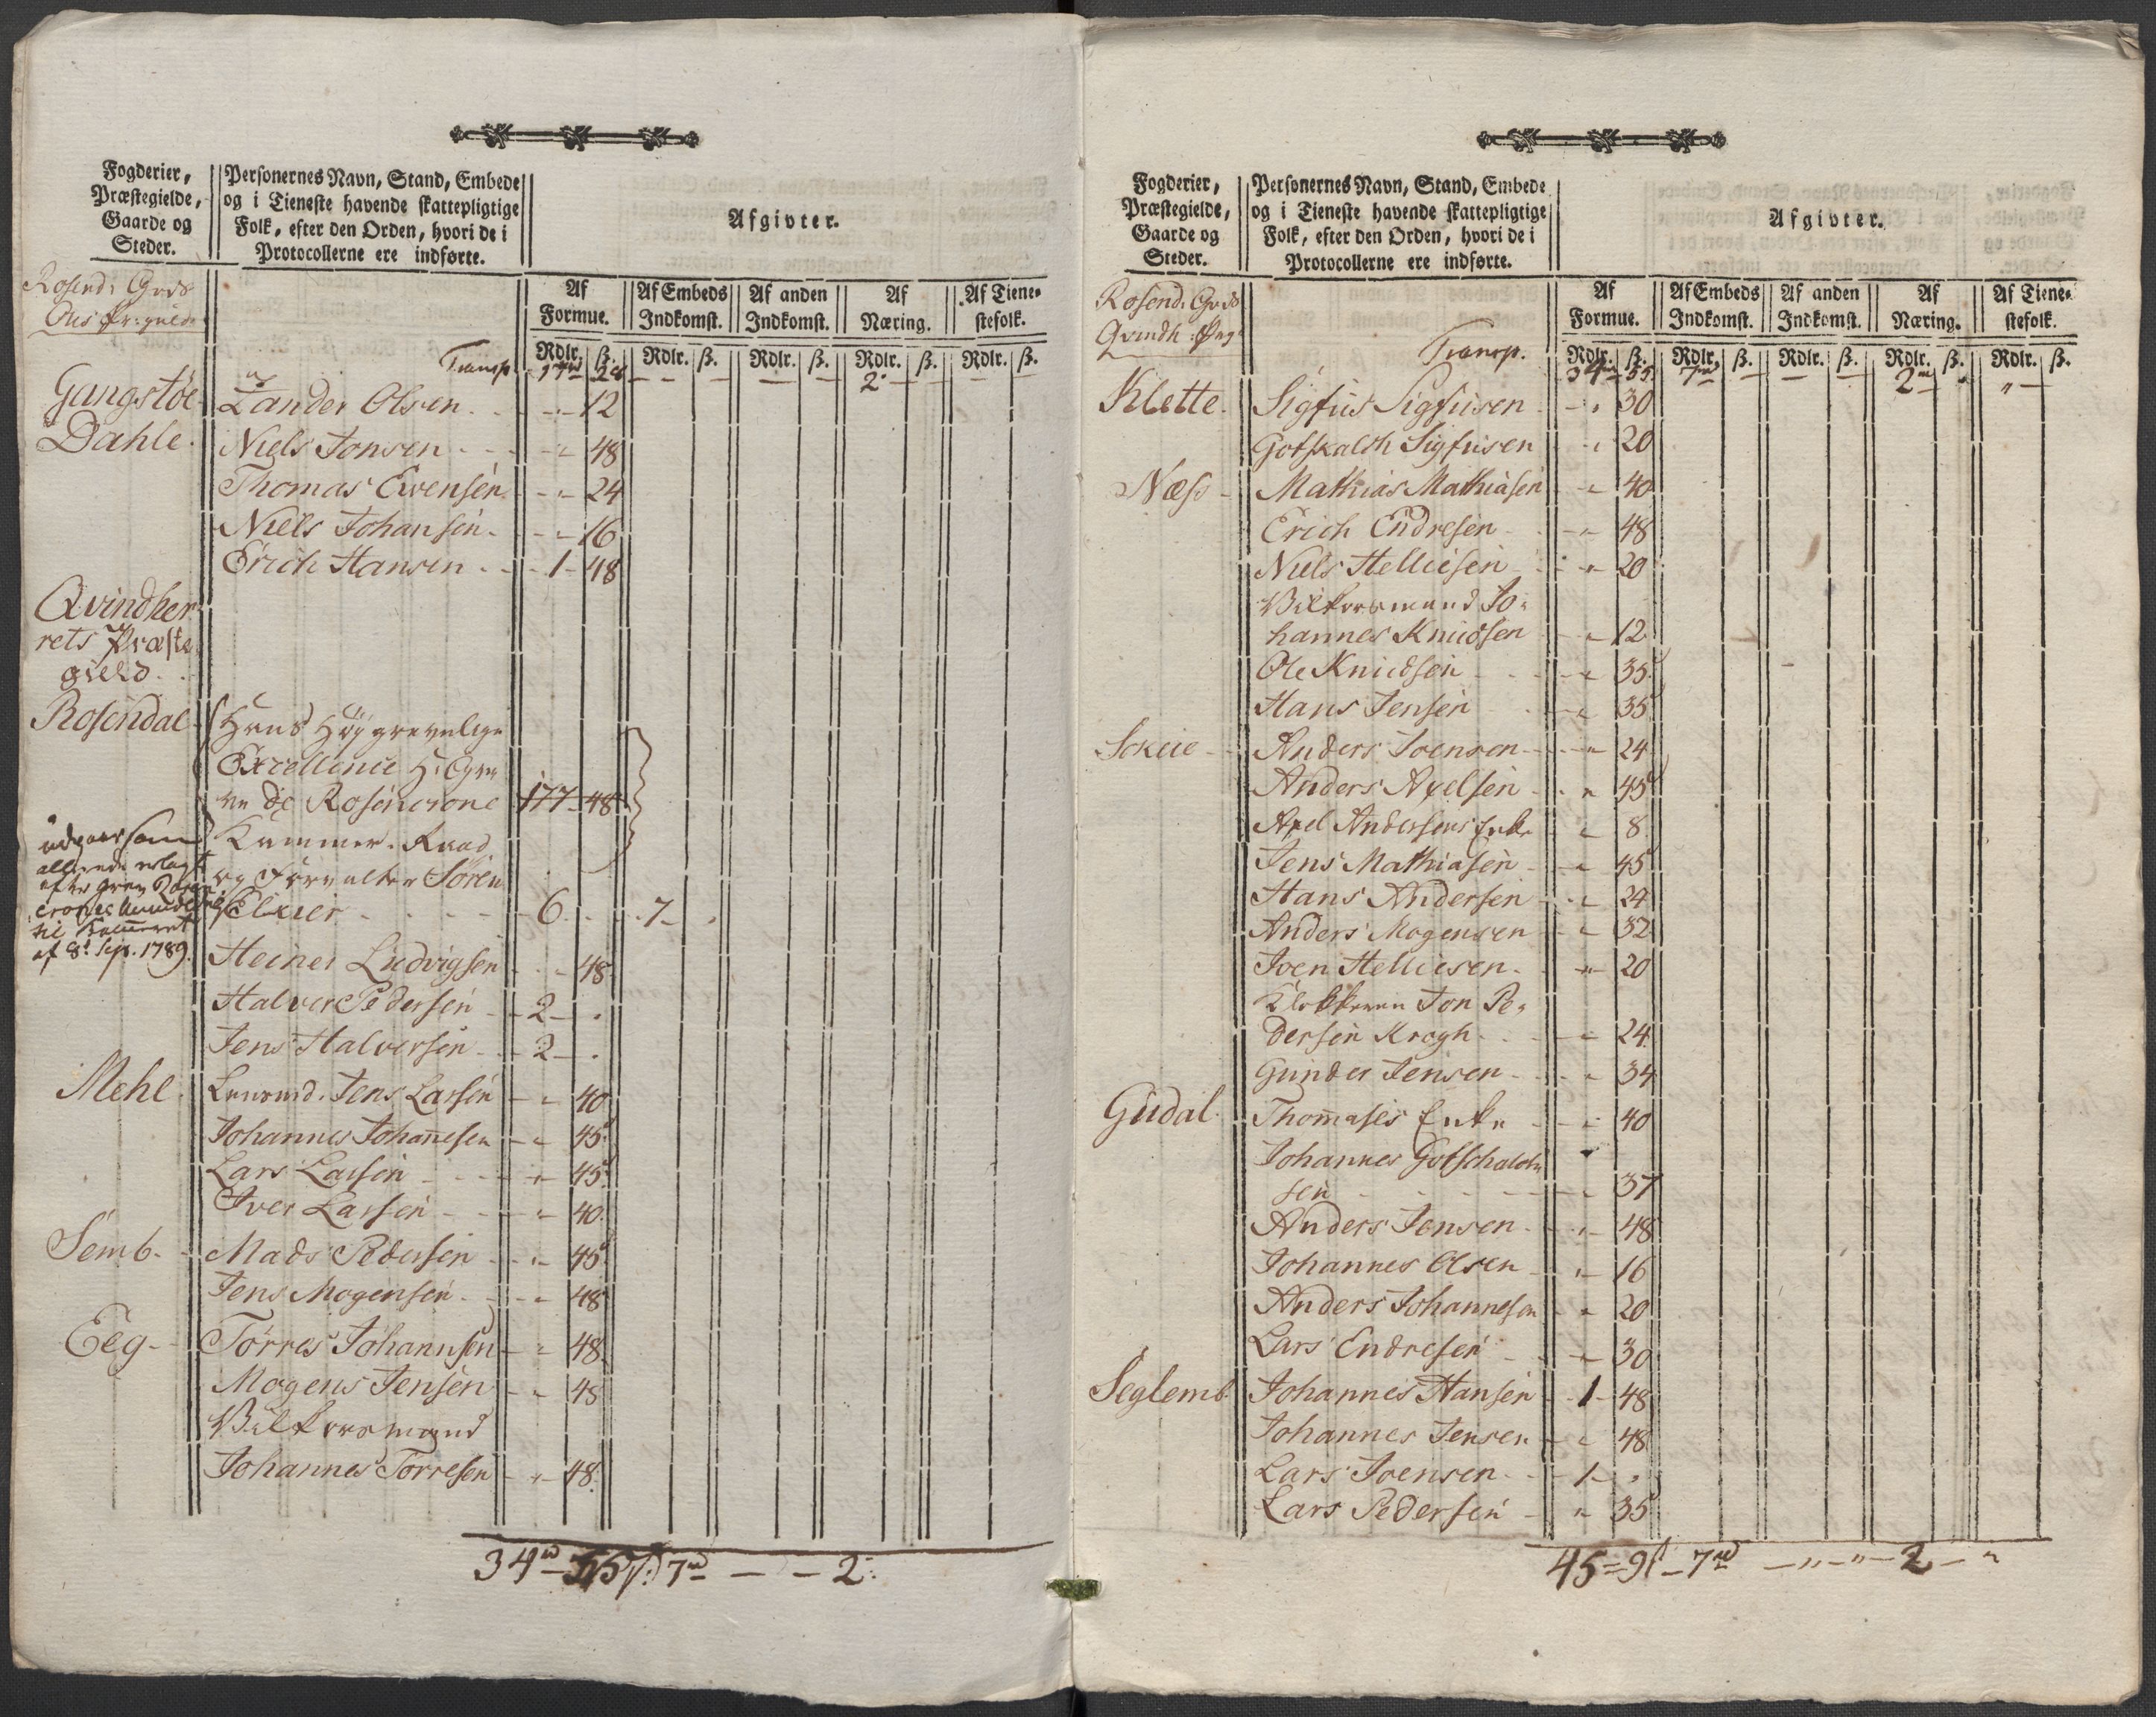 Fogderier,
Præstegielde,
Gaarde og
Steder.
Personernes Navn, Stand, Embede
og i Tieneste havende skattepligtige
Folk, efter den Orden, hvori de i
Protocollerne ere indførte.
Afgivter.
Af
Formue.
Af Embeds
Indkomst.
Af anden
Indkomst.
Af
Næring.
Af Tiene-
stefolk.
Rdlr. ß. Rdlr. ß. Rdlr. ß. Rdlr. ß. Rdlr. ß.
Rosend: Gods
Transp. 2
Gangstøe Zander Olsen 12
Dahle Niels Jonsen 48
Thomas Evensen 24
Niels Johansen 16
Erich Hansen 1 48
Qvindher-
rets Præste
gield.
Rosendal Hans Høygrevelige
Excellence H: Gre
ve de Rosencrone 177 48
Kammer-Raad
og Forvalter Søren
6 7
udgaar som
allerede erlagt
efter Grev Rosen
crones Anmeldelse
til Kammeret
af 8de Sep. 1789.
Heiner Ludvigsen 48
Halver Pedersen 2
Jens Halversen 2
Mehl Lensmd. Jens Larsen 40
Johannes Johannesen 45
Lars Larsen 45
Iver Larsen 40
Semb Mads Pedersen 45
Jens Mogensen 48
Eeg Torres Johannsen 48
Mogens Jensen 48
Vilkorsmand
Johannes Torresen 48
34 rd 55 ß: 7 rd 2
Fogderier,
Præstegielde,
Gaarde og
Steder.
Personernes Navn, Stand, Embede
og i Tieneste havende skattepligtige
Folk, efter den Orden, hvori de i
Protocollerne ere indførte.
Afgivter.
Af
Formue.
Af Embeds
Indkomst.
Af anden
Indkomst.
Af
Næring.
Af Tiene-
stefolk.
Rdlr. ß. Rdlr. ß. Rdlr. ß. Rdlr. ß. Rdlr. ß.
Rosend. Gods
Qvindh: Prg
Transp. 34 55 7 2
Klette Sigfus Sigfusen 30
Gotskalch Sigfusen 20
Næss Mathias Mathiasen 40
Erich Endresen 48
Niels Helliesen 20
Vilkorsmand Jo-
hannes Knudsen 12
Ole Knudsen 35
Hans Jensen 35
Skeie Anders Joensen 24
Anders Axelsen 45
Axel Andersens Enke 8
Jens Mathiasen 45
Hans Andersen 24
Anders Mogensen 32
Joen Helliesen 20
Klokkeren Jon Pe-
dersen Krogh 24
Gunder Jensen 34
Gudal Thommases Enke 40
Johannes Gotschalch
sen 37
Anders Jensen 48
Johannes Olsen 16
Anders Johannesen 20
Lars Endresen 30
Seglemb Johannes Hansen 1 48
Johannes Jensen 48
Lars Joensen 1
Lars Pedersen 35
45 = 9 ß 7 rd 2